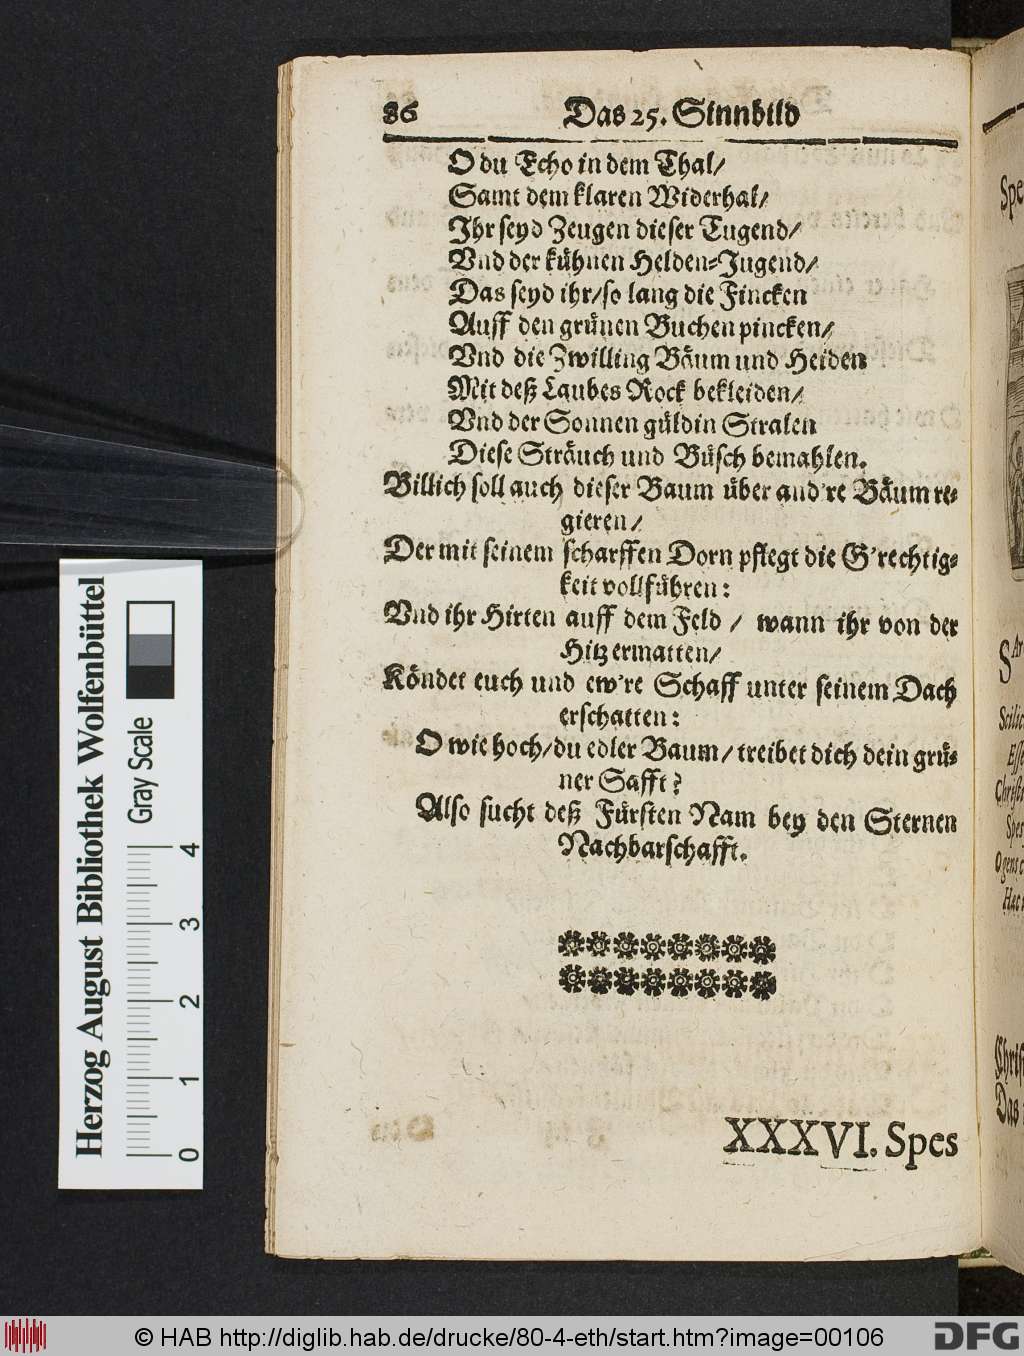 86 Das 25. Sinnbild
O du Echo in dem Thal/
Samt dem klaren Widerhal/
Ihr seyd Zeugen dieser Tugend/
Vnd der kühnen Helden-Jugend/
Das seyd ihr/so lang die Fincken
Auff den grünen Buchen pincken/
Vnd die Zwilling Bäum und Heiden
Mit deß Laubes Rock bekleiden/
Vnd der Sonnen güldin Stralen
Diese Sträuch und Büsch bemahlen.
Billich soll auch dieser Baum über and're Bäum re-
gieren/
Der mit seinem scharffen Dorn pflegt die G'rechtig-
keit vollführen:
Vnd ihr Hirten auff dem Feld / wann ihr von der
Hitz ermatten/
Köndet euch und ew're Schaff unter seinem Dach
erschatten:
O wie hoch/du edler Baum/treibet dich dein grü-
ner Safft?
Also sucht deß Fürsten Nam bey den Sternen
Nachbarschafft.
XXXVI. Spes
Herzog August Bibliothek Wolfenbüttel
Gray Scale
0 1 2 3 4
© HAB http://diglib.hab.de/drucke/80-4-eth/start.htm?image=00106
DFG